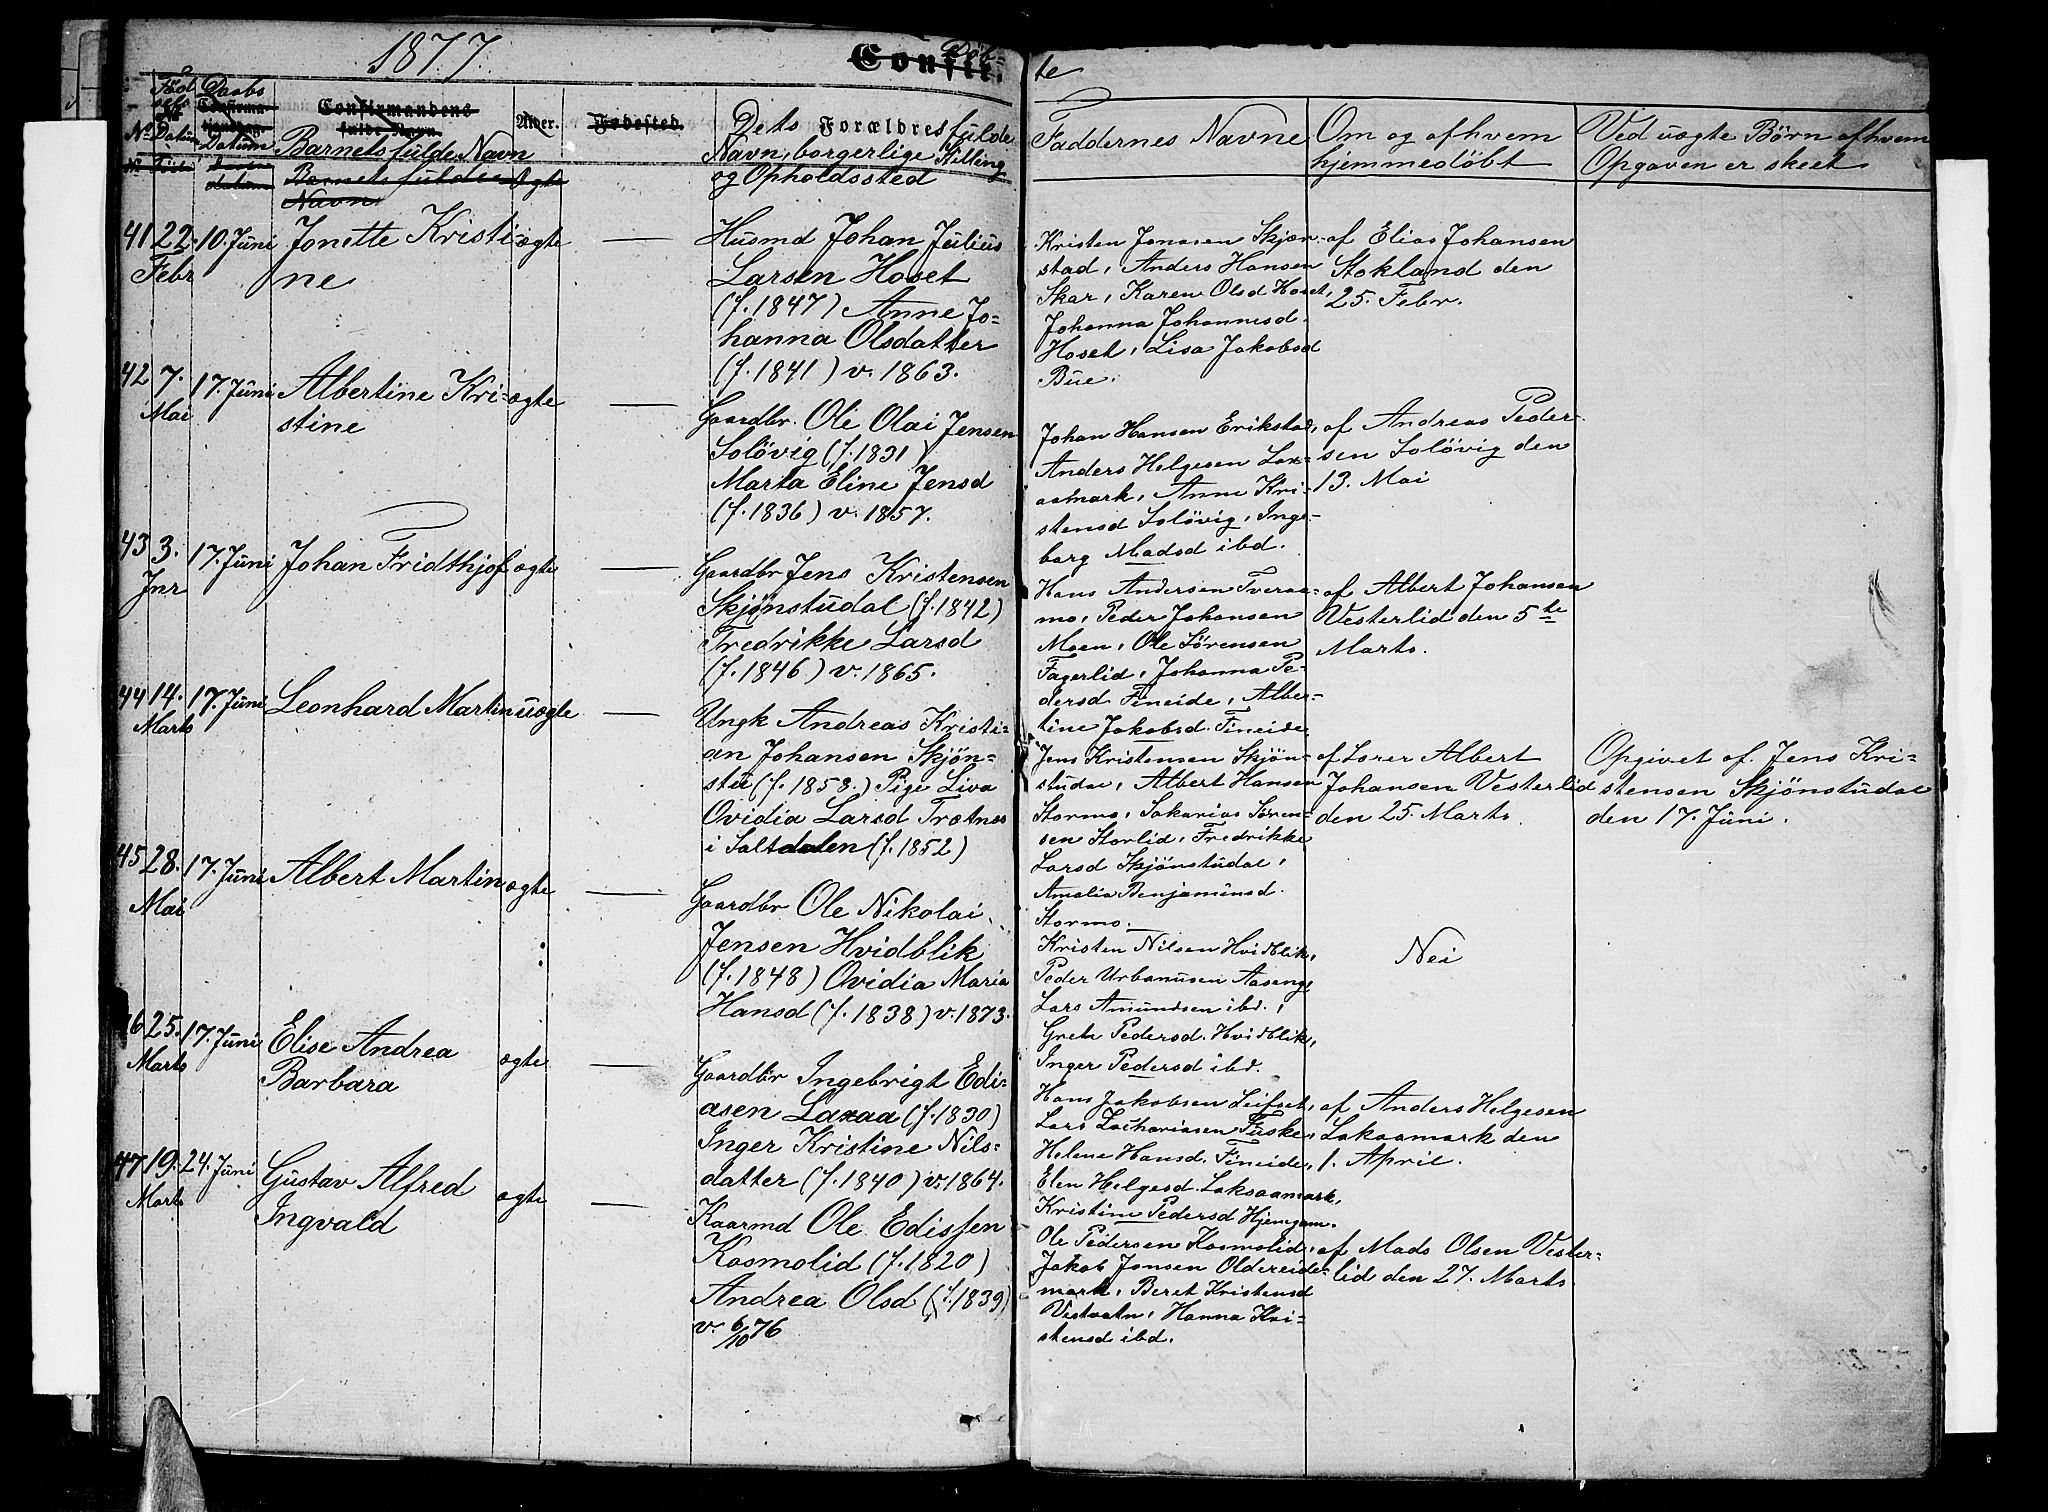 1877.
Confir-
Döb-
te
Föd
sels
Daabs
Confirma-
Datum
Confirmandens
fulde Navn.
Alder.
Fødested.
No Datum
Barnets fulde Navn
Barnets fulde
Navn
Ægte
Dets Forældres fulde
Navn, borgerlige Stilling
og Opholdssted
Faddernes Navne
Om og af hvem
hjemmedöbt
Ved uægte Börn af hvem
Opgaven er skeet
41 22. 10. Juni Jonette Kristi- ægte
Febr ne
Husmd Johan Julius
Larsen Hoset
(f. 1847) Anne Jo-
hanna Olsdatter
(f. 1841) v. 1863.
Kristen Jonasen Skjær-
stad, Anders Hansen
Skar, Karen Olsd Hoset,
Johanna Johannesd
Hoset, Lisa Jakobsd
Bue.
af Elias Johansen
Stokland den
25. Febr.
42 7. 17. Juni Albertine Kri- ægte
Mai stine
Gaardbr. Ole Olai Jensen
Solövig (f. 1831)
Marta Eline Jensd
(f. 1836) v. 1857.
Johan Hansen Erikstad,
Anders Helgesen Lax-
aamark, Anne Kri-
stensd Solövig, Inge-
borg Madsd ibd.
af Andreas Peder-
sen Solövig den
13. Mai
43 3. 17. Juni Johan Fridthjof ægte
Jnr
Gaardbr Jens Kristensen
Skjönstudal (f. 1842)
Fredrikke Larsd
(f. 1846) v. 1865.
Hans Andersen Tveraa-
mo, Peder Johansen
Moen, Ole Sörensen
Fagerlid, Johanna Pe-
dersd Fineide, Alber-
tine Jakobsd. Fineide
af Albert Johansen
Vesterlid den 5te
Marts.
44 14. 17. Juni Leonhard Martin uægte
Marts
Ungk Andreas Kristi-
an Johansen Skjön-
stu (f. 1858.) Pige Liva
Ovidia Larsd Trætnes
i Saltdalen (f. 1852)
Jens Kristensen Skjön-
studal, Albert Hansen
Stormo, Sakarias Sören-
sen Storlid, Fredrikke
Larsd Skjönstudal,
Amalia Benjaminsd.
Stormo.
af Lærer Albert
Johansen Vesterlid
den 25. Marts.
Opgivet af Jens Kri-
stensen Skjönstudal
den 17. Juni.
45 28. 17. Juni Albert Martin ægte
Mai
Gaardbr Ole Nikolai
Jensen Hvidblik
(f. 1848) Ovidia Maria
Hansd (f. 1838) v. 1873.
Kristen Nilsen Hvidblik,
Peder Urbanusen Aaseng,
Lars Amundsen ibd.,
Grete Pedersd. Hvidblik,
Inger Pedersd ibd.
Nei
46 25. 17. Juni Elise Andrea ægte
Marts Barbara
Gaardbr Ingebrigt Edi-
asen Laxaa (f. 1830)
Inger Kristine Nils-
datter (f. 1840) v. 1864.
Hans Jakobsen Leifset,
Lars Zachariasen Fuske,
Helene Hansd. Fineide,
Elen Helgesd. Laksaamark,
Kristine Pedersd Hjemgam.
af Anders Helgesen
Laksaamark den
1. April.
47 19. 24. Juni Gustav Alfred ægte
Marts Ingvald
Kaarmd Ole Edissen
Kosmolid (f. 1820)
Andrea Olsd (f. 1839)
v. 6/10 76
Ole Pedersen Kosmolid,
Jakob Jonsen Oldereide-
mark, Beret Kristensd
Vestvatn, Hanna Kri-
stensd ibd.
af Mads Olsen Vester-
lid den 27. Marts